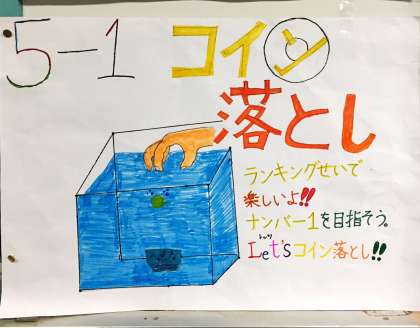 5-1
コイン
落とし
ランキングせいで
楽しいよ!!
ナンバー1を目指そう。
Let'sコイン落とし!!